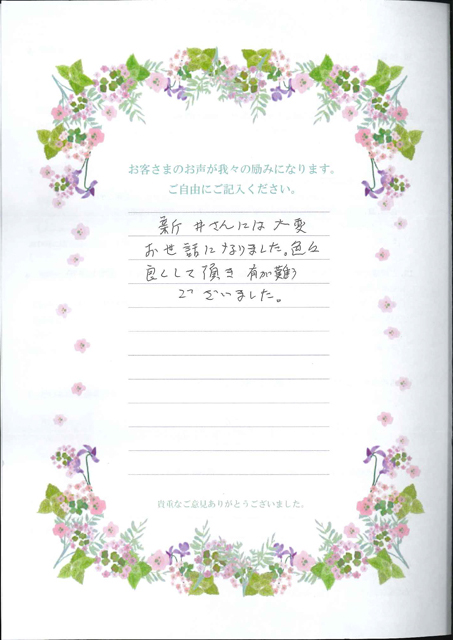 お客さまのお声が我々の励みになります。
ご自由にご記入ください。
新井さんには大変
お世話になりました。色々
良くして頂き有難う
ございました。
貴重なご意見ありがとうございました。